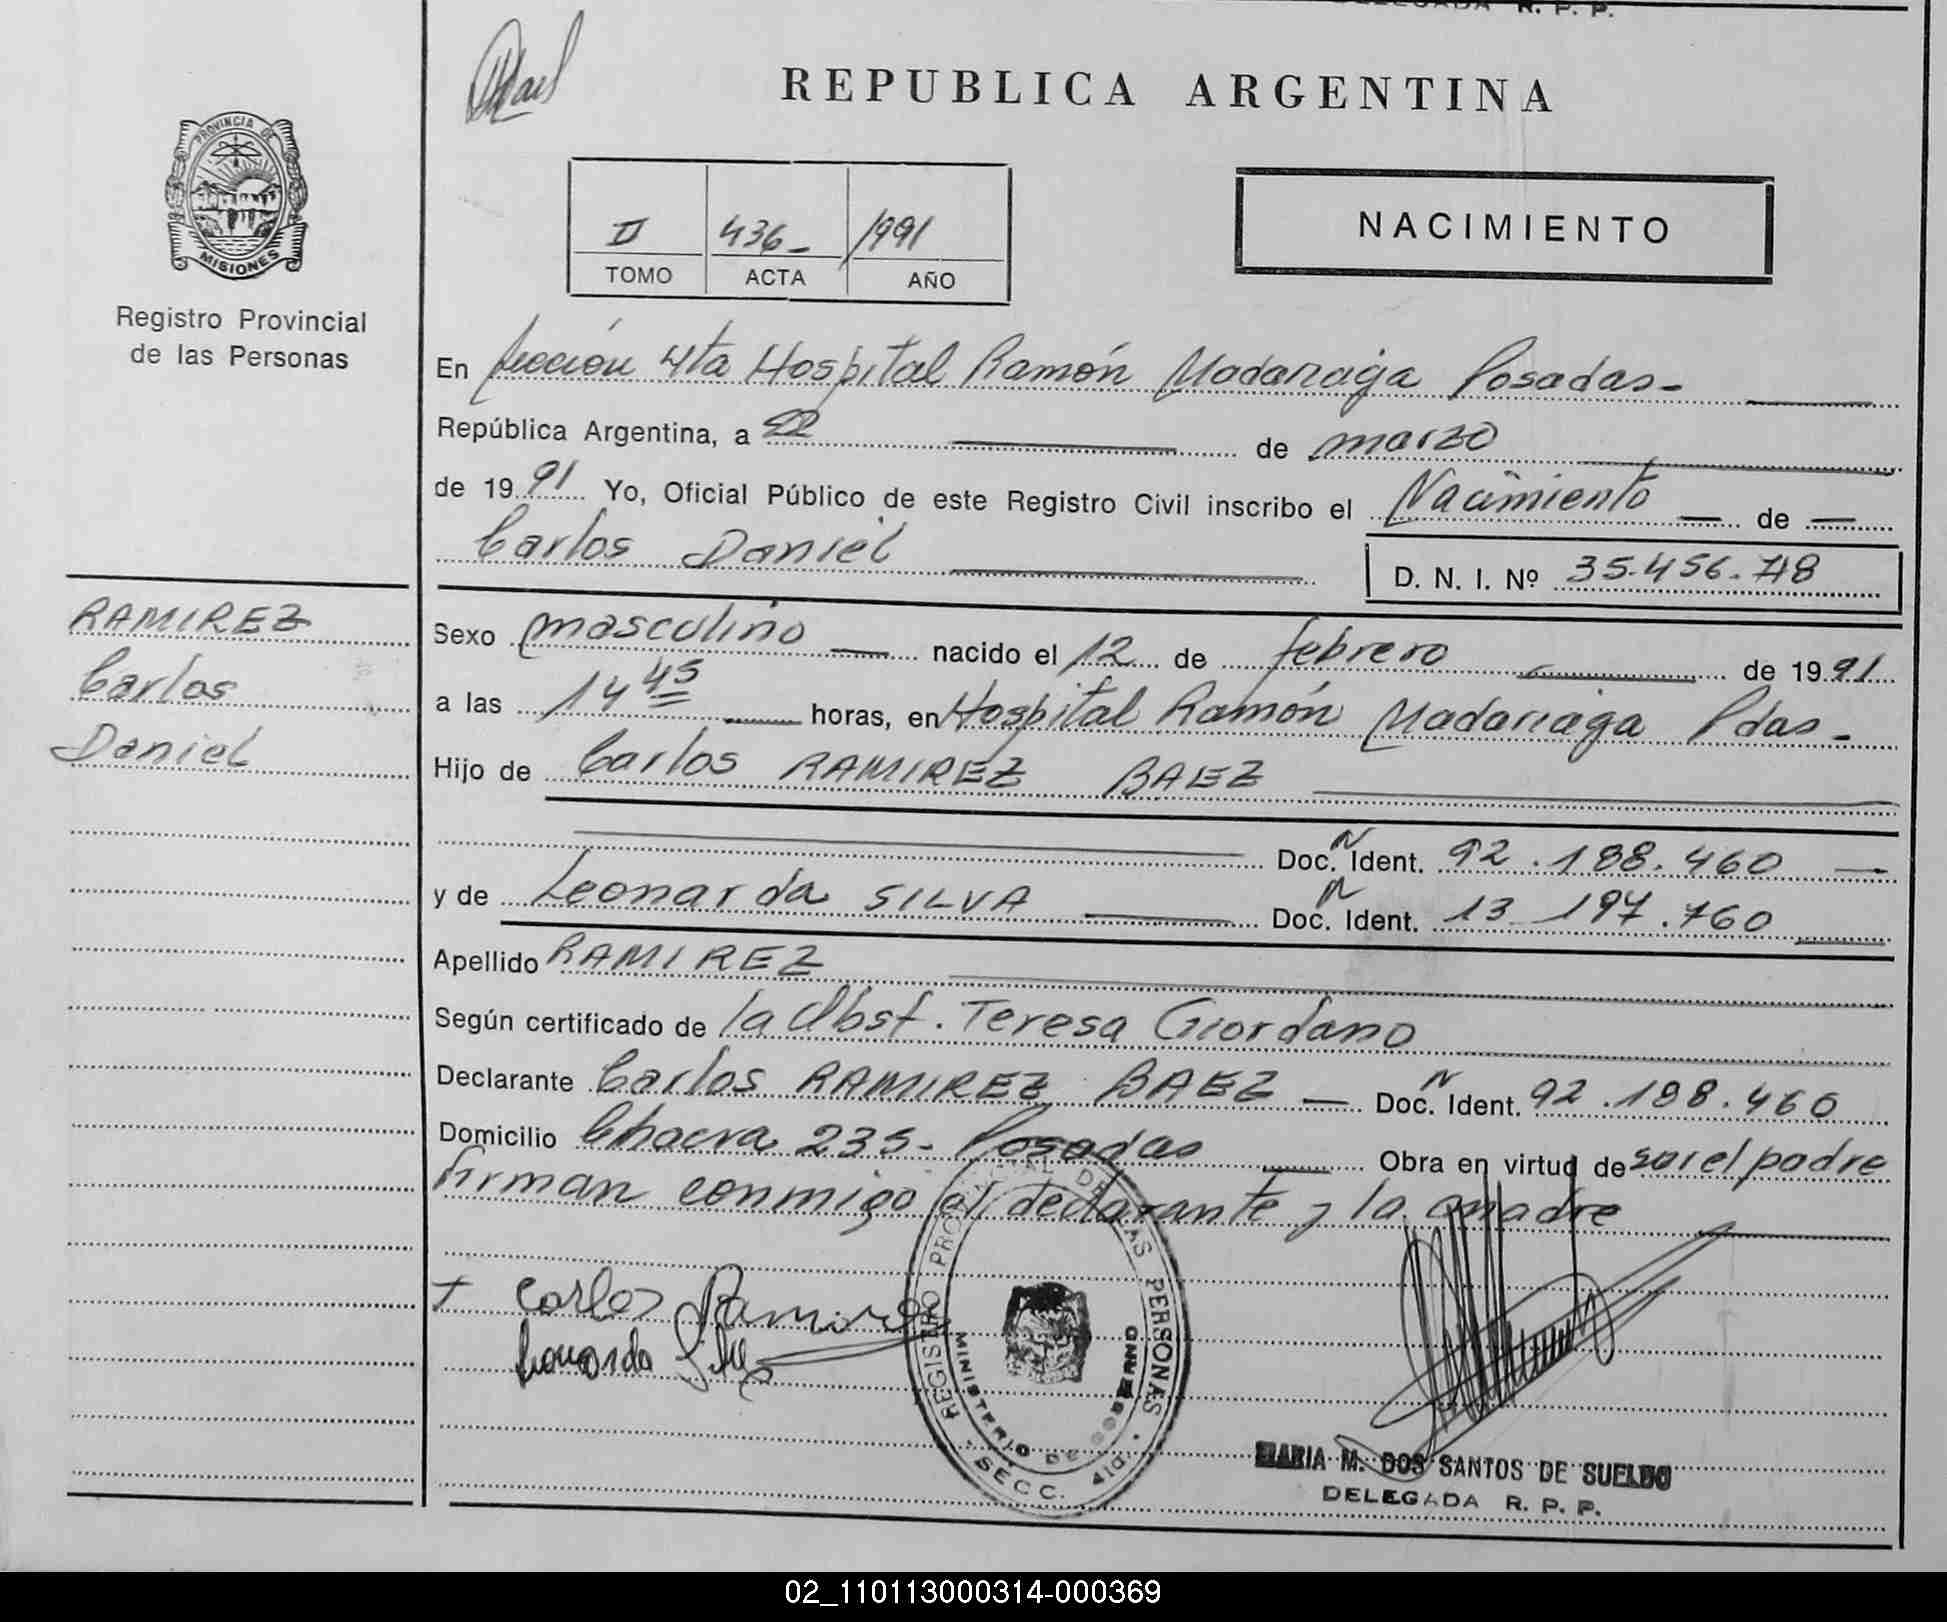 DELEGADA R. P. P.
REPUBLICA ARGENTINA
PROVINCIA DE
MISIONES
Registro Provincial
de las Personas
II 436- 1991
TOMO ACTA AÑO
NACIMIENTO
En Sección 4ta Hospital Ramón Madariaga Posadas-
República Argentina, a 22 de marzo
de 1991 Yo, Oficial Público de este Registro Civil inscribo el Nacimiento de
Carlos Daniel
D. N. I. Nº 35.456.718
RAMIREZ
Carlos
Daniel
Sexo masculino nacido el 12 de febrero de 1991
a las 14 45 horas, en Hospital Ramón Madariaga Pdas-
Hijo de Carlos RAMIREZ BAEZ
Doc. N Ident. 92.188.460
y de Leonarda SILVA Doc. N Ident. 13 197.760
Apellido RAMIREZ
Según certificado de la Obst. Teresa Giordano
Declarante Carlos RAMIREZ BAEZ Doc. N Ident. 92.188.460
Domicilio Chacra 235- Posadas Obra en virtud de ser el padre
firman conmigo el declarante y la madre
+ Carlos Ramirez
Leonarda Silva
REGISTRO PROVINCIAL DE LAS PERSONAS
MINISTERIO DE GOBIERNO
SECC. 4ta.
MARIA M. DOS SANTOS DE SUELDO
DELEGADA R. P. P.
02_110113000314-000369